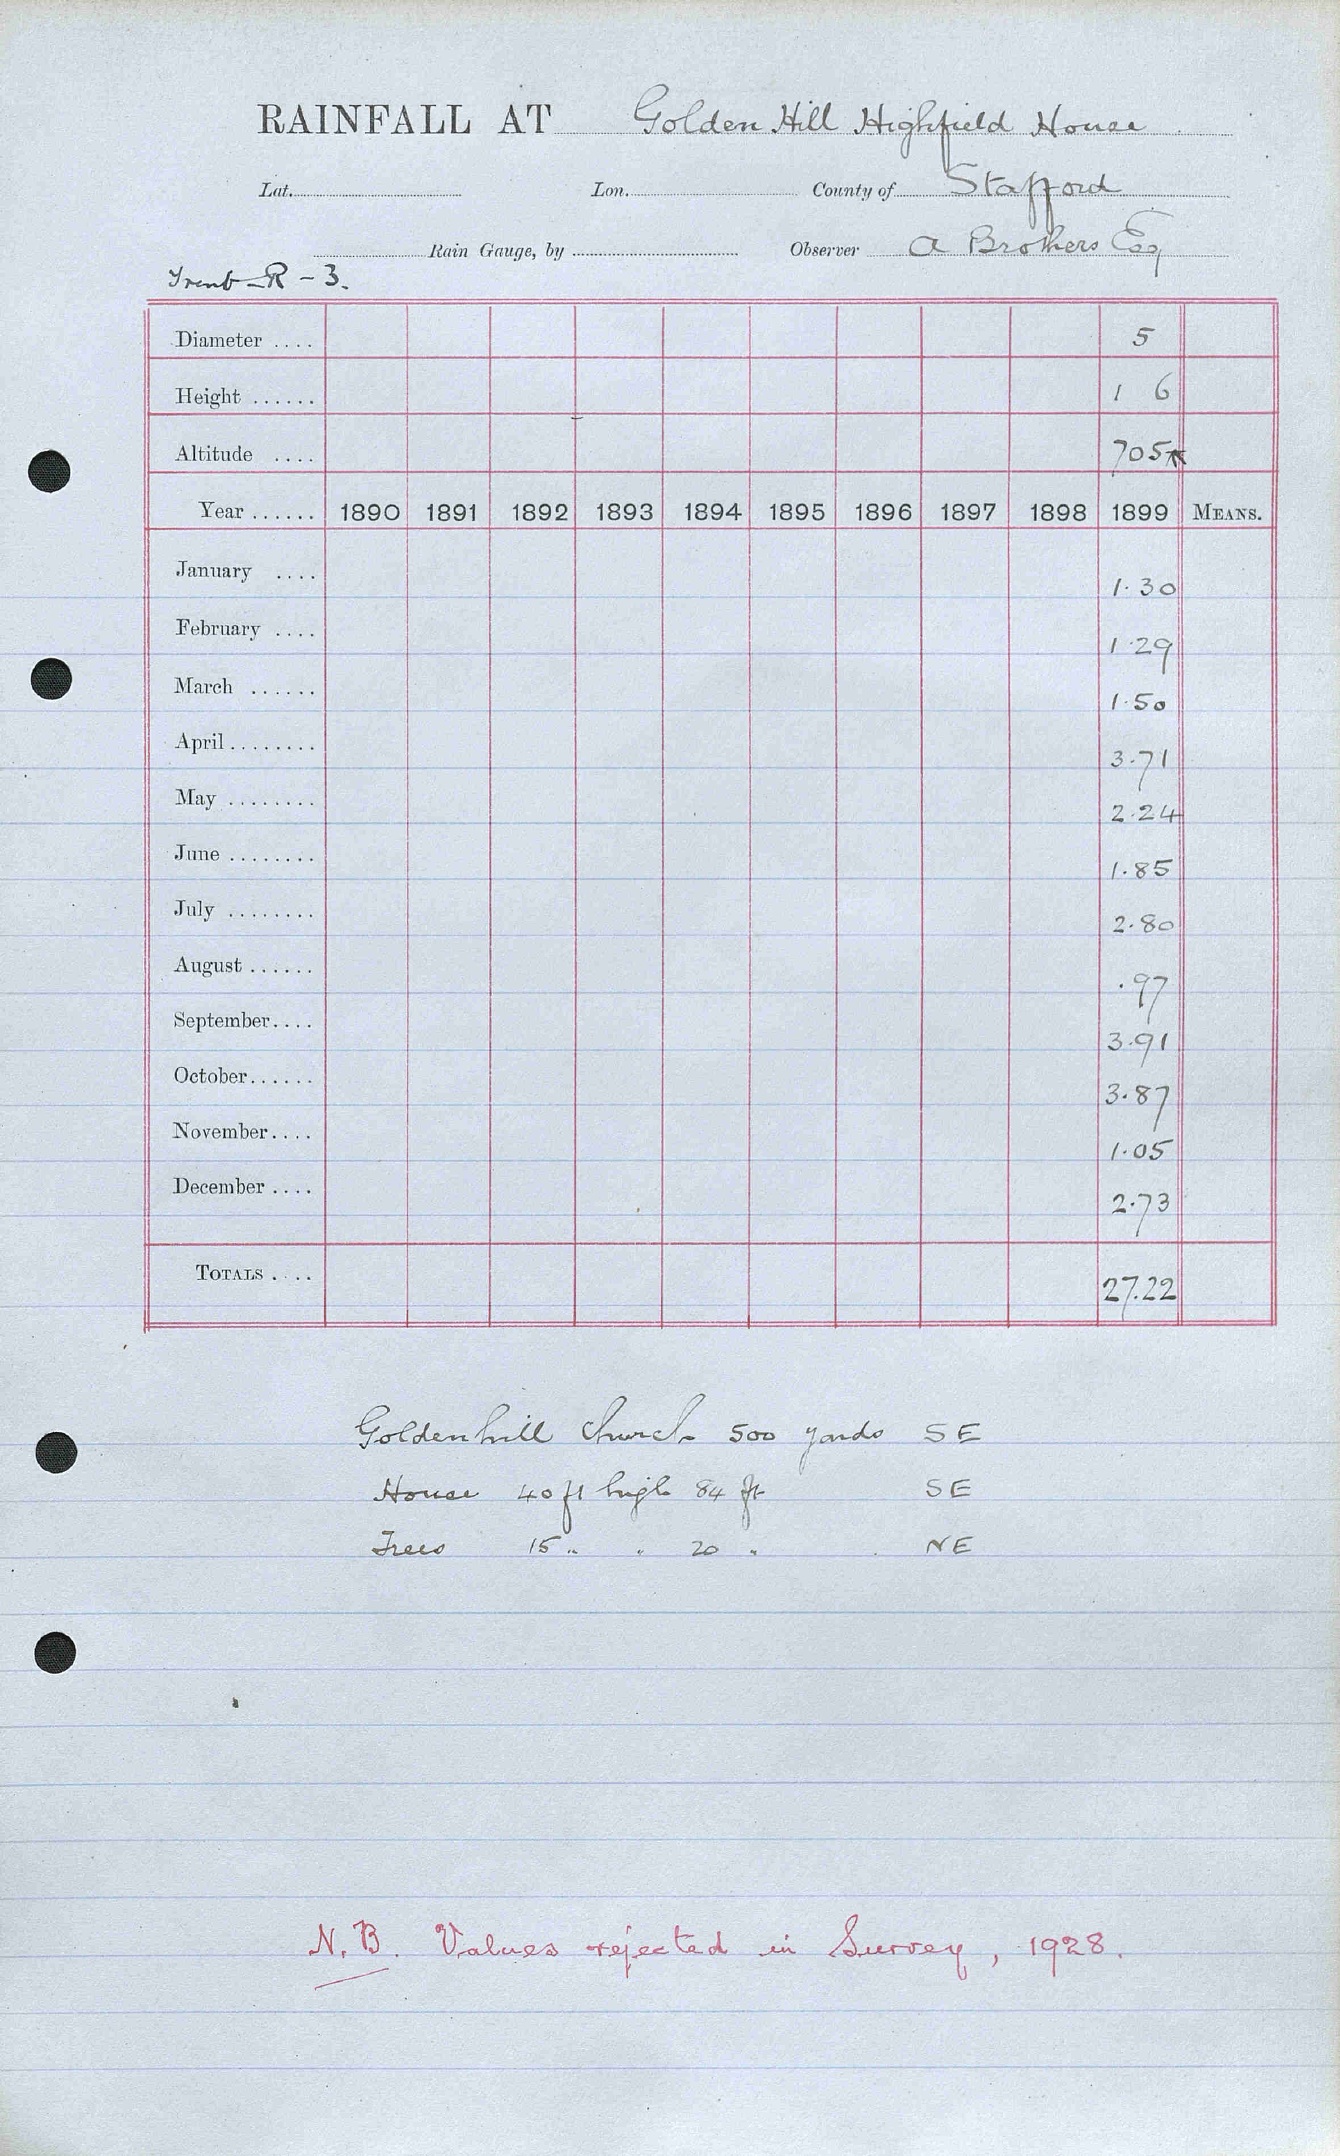 RAINFALL AT Golden Hill Highfield House
Lat. Lon. County of Stafford
Rain Gauge, by Observer A Brothers Esq
Trent R - 3.
Diameter .... 5
Height ...... 1 6
Altitude .... 705
Year ...... 1890 1891 1892 1893 1894 1895 1896 1897 1898 1899 MEANS.
January .... 1.30
February .... 1.29
March ...... 1.50
April ........ 3.71
May ........ 2.24
June ........ 1.85
July ........ 2.80
August ...... .97
September .... 3.91
October ...... 3.87
November .... 1.05
December .... 2.73
TOTALS .... 27.22
Goldenhill Church 500 yards SE
House 40 ft high 84 ft SE
Trees 15 " " 20 " NE
N.B. Values rejected in Survey, 1928.